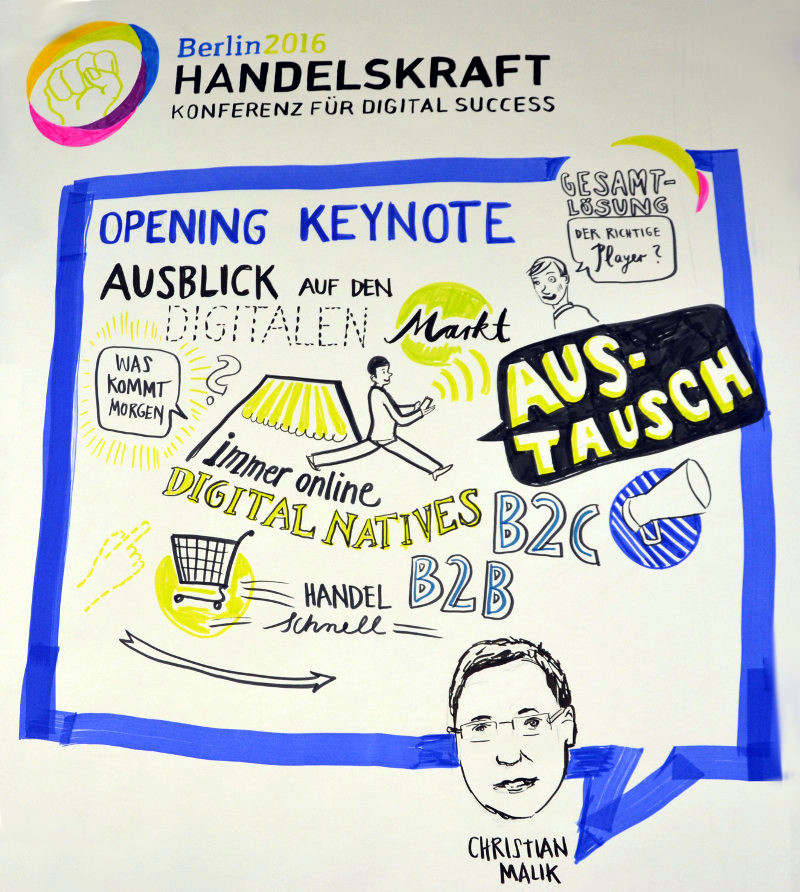 Berlin2016
HANDELSKRAFT
KONFERENZ FÜR DIGITAL SUCCESS
GESAMT-
LÖSUNG
DER RICHTIGE
Player?
OPENING KEYNOTE
AUSBLICK AUF DEN
DIGITALEN Markt
WAS
KOMMT
MORGEN
?
AUS-
TAUSCH
immer online
DIGITAL NATIVES
B2C
B2B
HANDEL
schnell
CHRISTIAN
MALIK